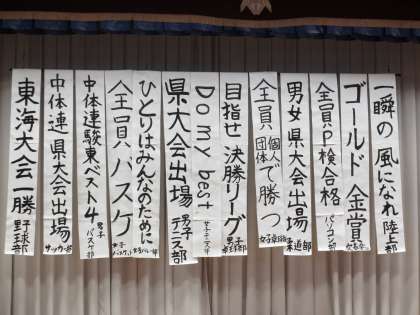 一瞬の風になれ 陸上部
ゴールド金賞
全員P検合格 パソコン部
男女県大会出場 柔道部
全員 個人 団体 で勝つ 女子卓球部
目指せ 決勝リーグ 男子 卓球部
Do my best
県大会出場 男子 テニス部
ひとりはみんなのために
全員バスケ 女子 バスケット部
中体連駿東ベスト4 男子 バスケ部
中体連 県大会出場 サッカー部
東海大会一勝 野球部